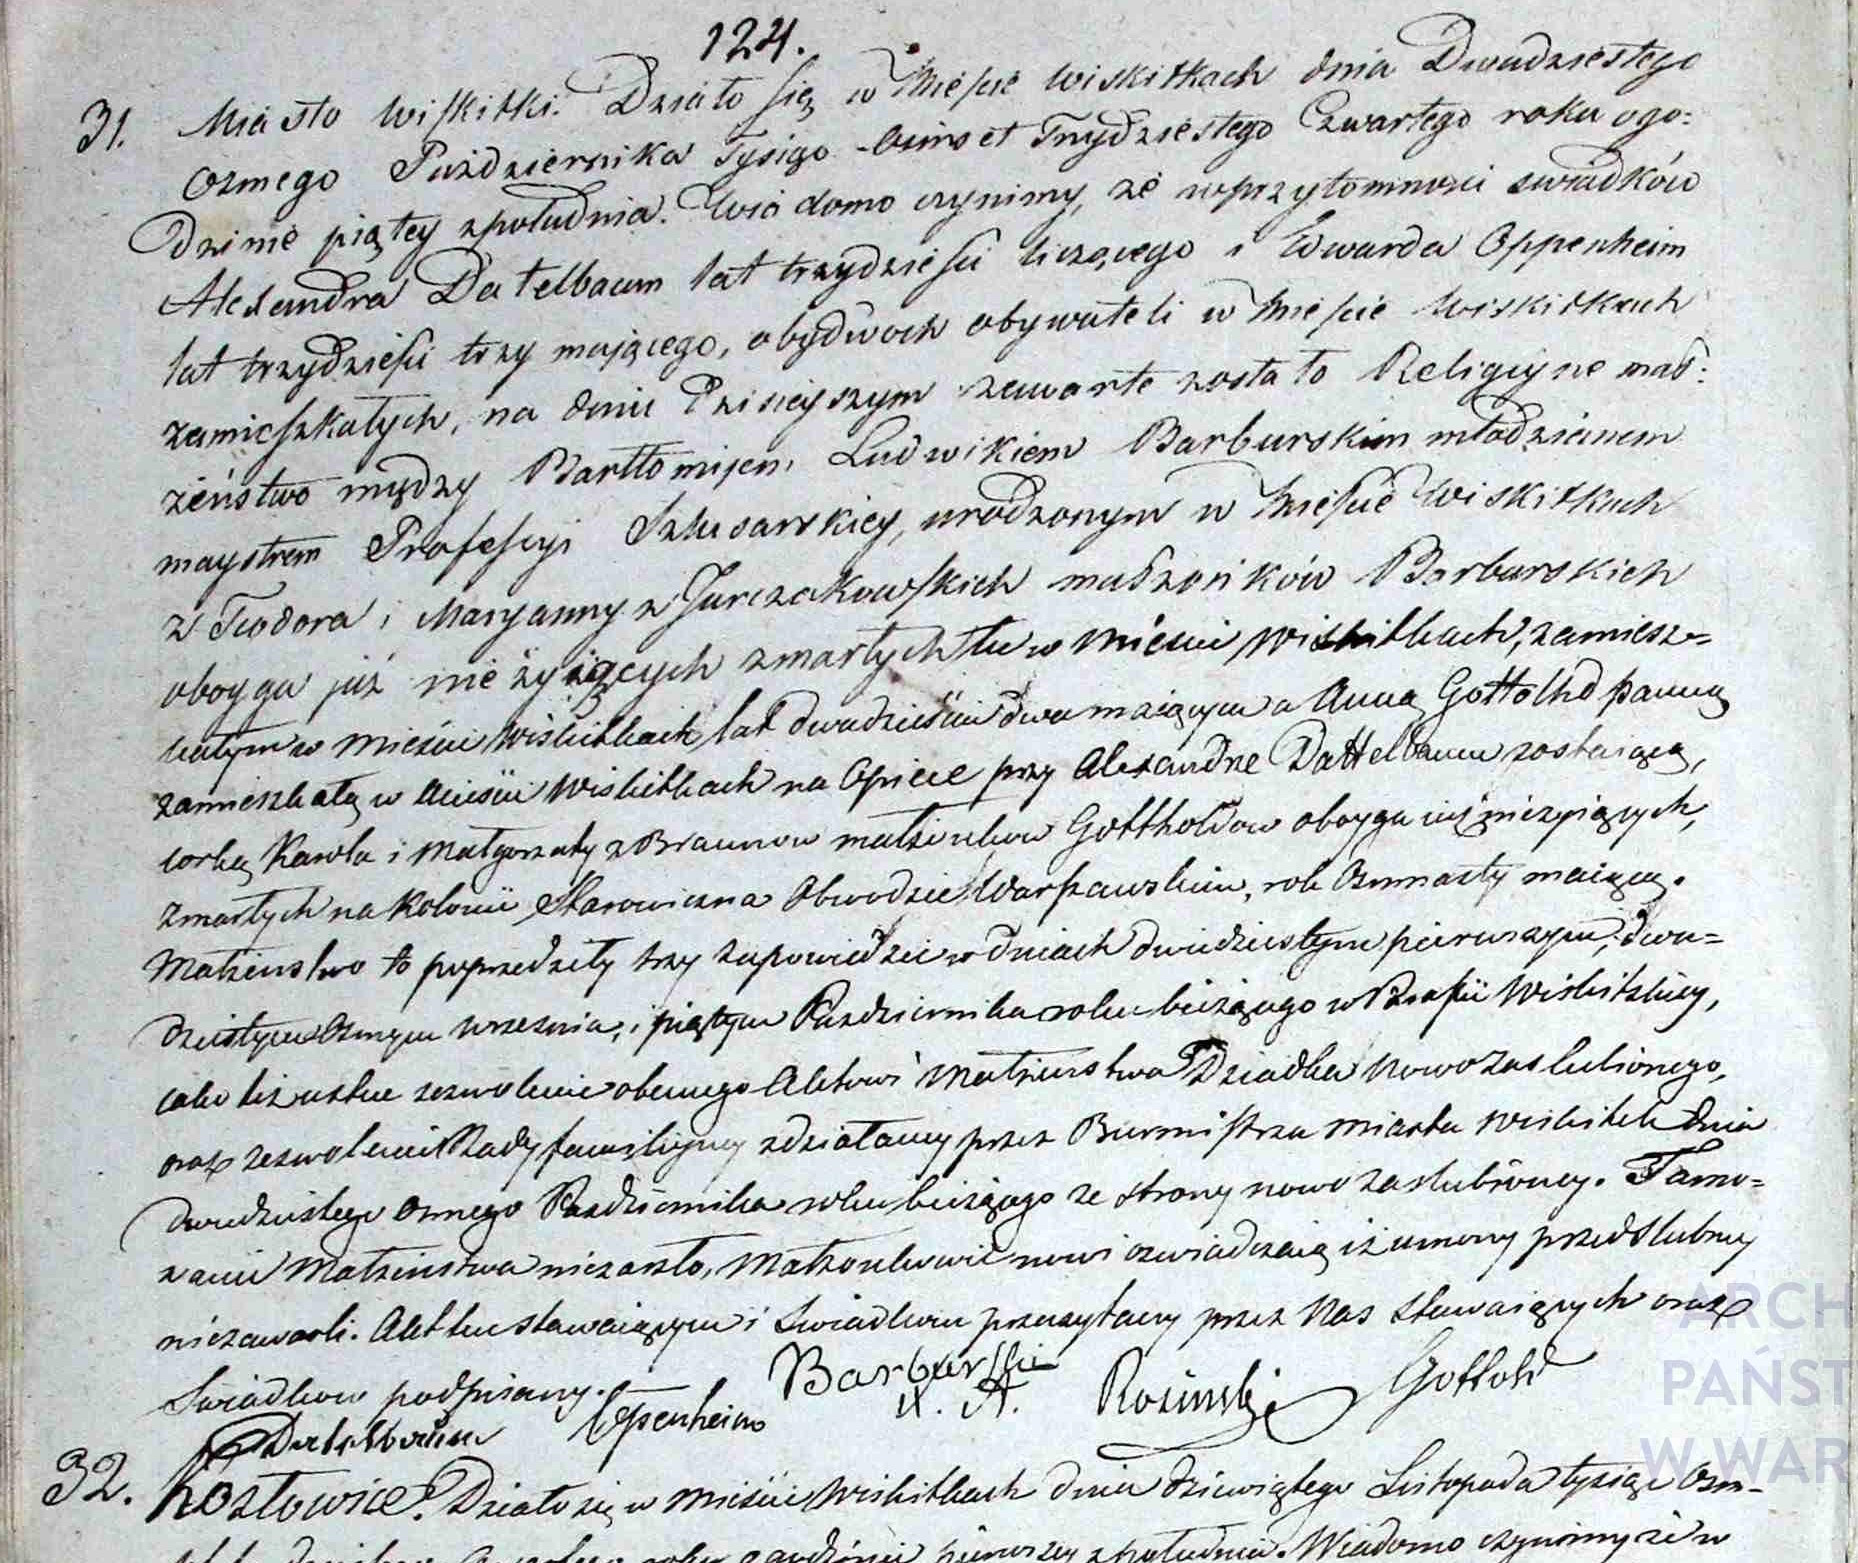 124.
31. Miasto Wiskitki. Działo się w Mieście Wiskitkach dnia Dwudziestego
Osmego Pazdziernika Tysiąo Osmset Trzydziestego Czwartego roku ogo:
dzinie piątey zpołudnia. Wiadomo czynimy, że wprzytomnosci swiadków
Alexandra Datelbaum lat trzydziesci liczącego i Edwarda Oppenheim
lat trzydziesci trzy mającego, obydwoch obywateli w Miescie Wiskitkach
zamieszkałych, na dniu dzisieyszym zawarte zostało Religiyne mał:
żeństwo między Bartłomiem Ludwikiem Barburskim młodzianem
maystrem Profesyi Szlusarskiey, urodzonym w Mieście Wiskitkach
z Teodora i Maryanny z Jurczakowskich małżonków Barburskich
oboyga już nie żyjących zmarłych tu w Mieście Wiskitkach, zamiesz=
kałym w Mieście Wiskitkach lat dwadzieścia dwa maiącym a Anną Gottolhd panną
zamieszkałą w Mieście Wiskitkach na Opiece przy Alexandrze Dattelbaum zostaiącą,
corką Karola i Małgorzaty z Braunow małżonkow Gottholdow oboyga iuż nieżyiących,
zmarłych na Kolonii Starowiczna Obwodzie Warszawskim, rok Osmnasty maiącą.
Małżenstwo to poprzedziły trzy zapowiedzie w dniach dwudziestym pierwszym, dwu=
dziestym Osmym Wrzesnia, i piątym Pazdziernika roku bieżącego w Parafii Wiskitskiey,
iako też ustne zezwolenie obecnego Aktowi Małżenstwa Dziadka Nowozaslubionego,
oraz zezwolenie Rady familiyney zdziałaney przez Burmistrza miasta Wiskitek dnia
dwudziestego Osmego Pazdziernika roku bieżącego ze strony nowo zaslubioney. Tamo=
wanie Małżenstwa niezaszło, Małżonkowie nowi oswiadczaią iż umowy przedslubney
niezawarli. Akt ten stawaiącym i Swiadkom przeczytany przez Nas Stawaiących oraz
Swiadkow podpisany.
Barburski Rosinski Gottold
Dattelbaum Oppenheim
32. Kozłowice. Działo się w Mieście Wiskitkach dnia dziewiątego Listopada tysiąc Osm=
pierwszey zpołudnia. Wiadomo czynimy że w
ARCH
PAŃST
W WAR